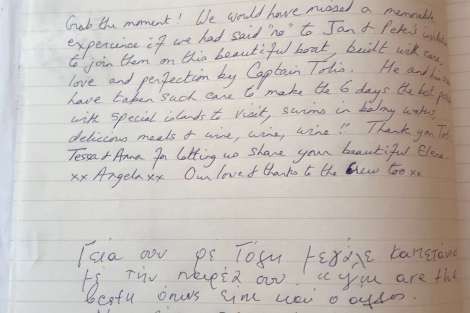 Grab the moment! We would have missed a memorable
experience if we had said "no" to Jan & Peter's
to join them on this beautiful boat, built with care,
love and perfection by Captain Tolis. He and
have taken such care to make the 6 days the best
with special islands to visit, swims in balmy water,
delicious meals & wine, wine, wine!! Thank you
Tessa & Anna for letting us share your beautiful
xx Angela xx Our love & thanks to the crew too xx
Γειά σου ρε Τόλη μεγάλε καπετάνιο
με την παρέα σου. you are the
όπως είπε και ο